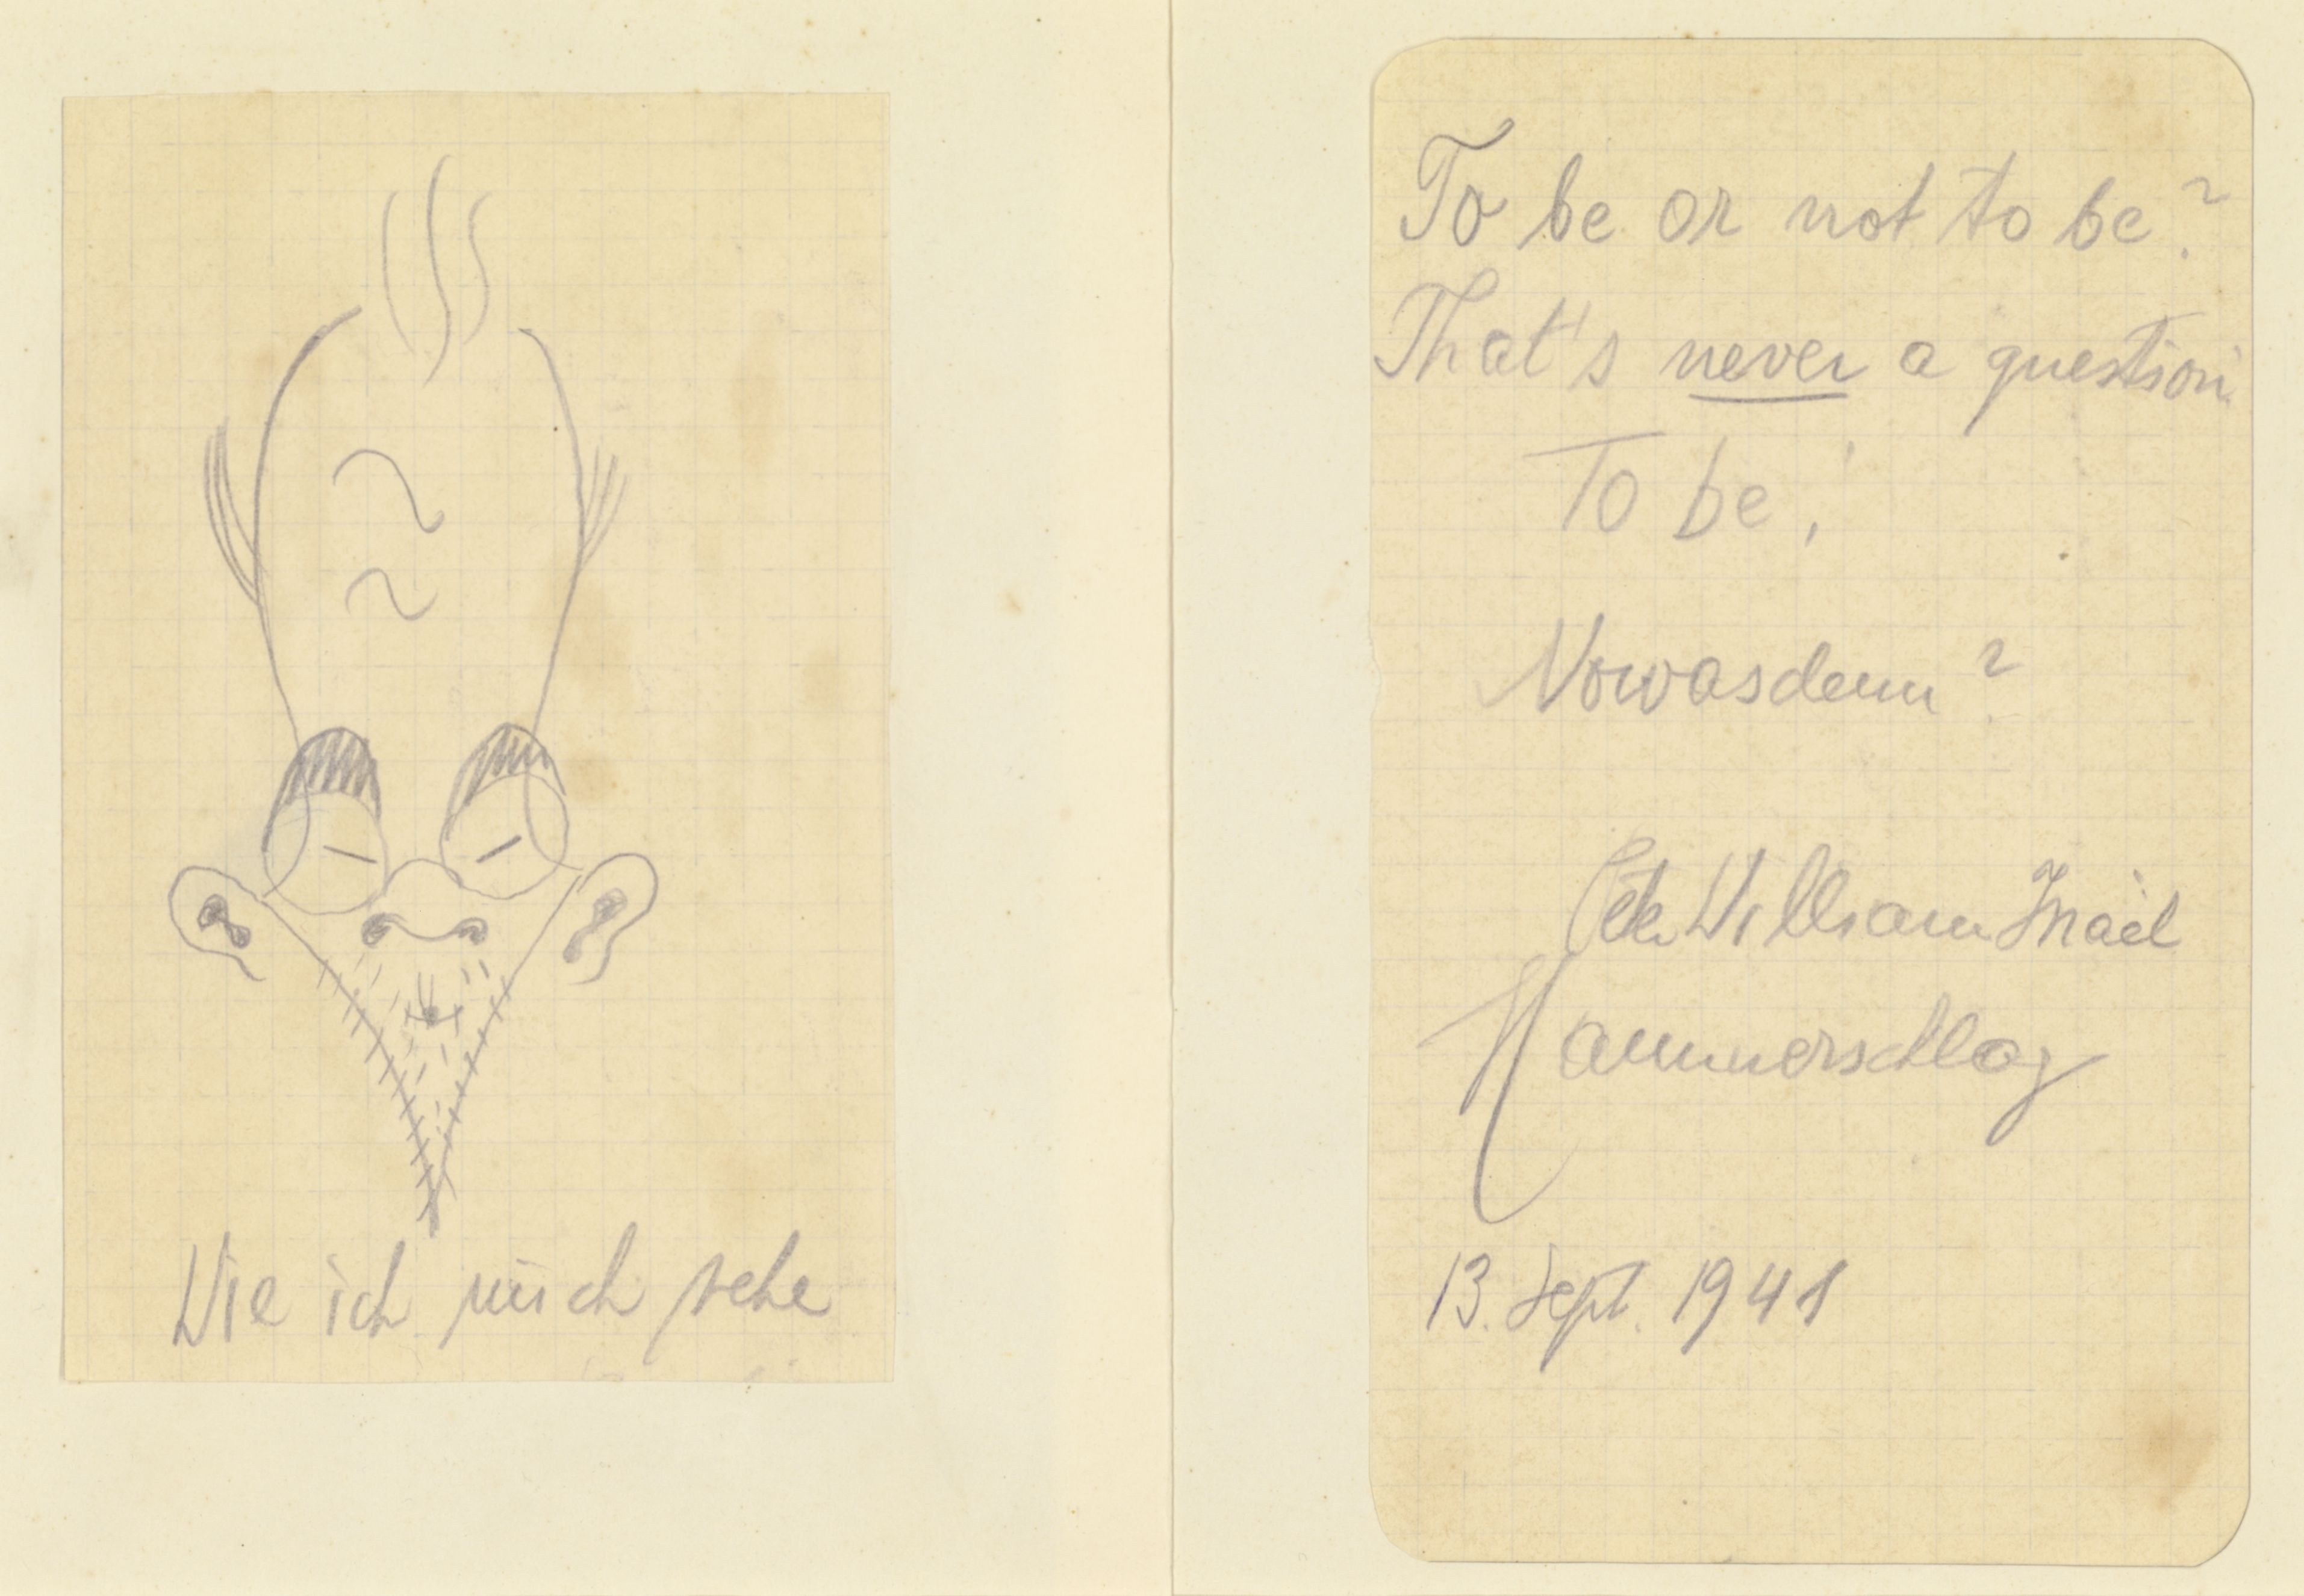 Wie ich mich sehe
To be or not to be?
That's never a question
To be!
Nowasdenn?
Peter William Israël
Hammerschlag
13. Sept. 1941